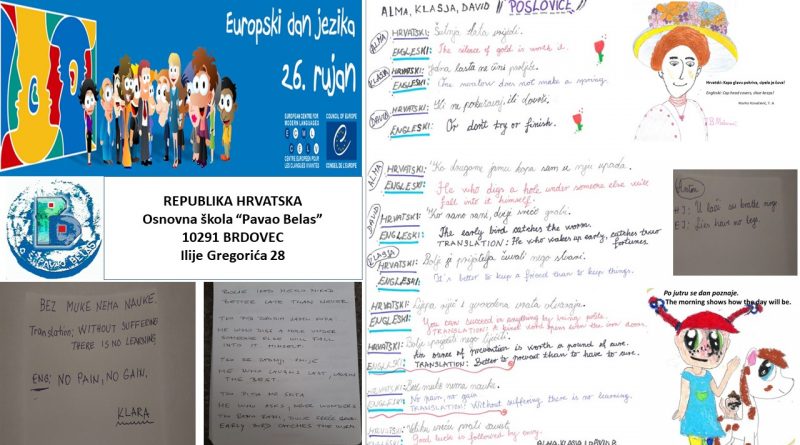 Europski dan jezika
26. rujan
EUROPEAN CENTRE FOR
MODERN LANGUAGES
ECML
CELV
CENTRE EUROPEEN POUR
LES LANGUES VIVANTES
COUNCIL OF EUROPE
CONSEIL DE L'EUROPE
REPUBLIKA HRVATSKA
Osnovna škola “Pavao Belas”
10291 BRDOVEC
Ilije Gregorića 28
BEZ MUKE NEMA NAUKE.
Translation; WITHOUT SUFFERING
THERE IS NO LEARNING
ENG: NO PAIN, NO GAIN.
KLARA
BETTER LATE THAN NEVER
HE WHO DIGS A HOLE UNDER
SOMEONE ELSE WILL FALL
INTO IT HIMSELF.
HE WHO LAUGHS LAST, LAUGHS
THE BEST
TKO PITA NE SKITA
HE WHO ASKS, NEVER WONDERS
EARLY BIRD CATCHES THE WORM
ALMA, KLASJA, DAVID "POSLOVICE"
ALMA
HRVATSKI: Šutnja zlata vrijedi.
ENGLESKI: The silence of gold is worth it.
KLASJA
HRVATSKI: Jedna lasta ne čini proljeće.
ENGLESKI: One swallow does not make a spring.
DAVID
HRVATSKI: Ili ne pokušavaj, ili dovrši.
ENGLESKI: Or don't try or finish.
ALMA
HRVATSKI: Ko drugome jamu kopa sam u nju upada.
ENGLESKI: He who digs a hole under someone else will
fall into it himself.
DAVID
HRVATSKI: Ko rano rani, dvije sreće grabi.
ENGLESKI: The early bird catches the worm.
TRANSLATION: He who wakes up early, catches two
fortunes.
KLASJA
HRVATSKI: Bolje je prijatelja čuvati nego stvari.
ENGLESKI: It's better to keep a friend than to keep things.
HRVATSKI: Lijepa riječ i gvozdena vrata otvaraju.
ENGLESKI: You can succeed in anything by being polite.
HRVATSKI: Bolje spriječiti nego liječiti.
ENGLESKI: An ounce of prevention is worth a pound of cure.
TRANSLATION: Better to prevent than to have to cure.
HRVATSKI: Bez muke nema nauke.
ENGLESKI: No pain, no gain
TRANSLATION: Without suffering, there is no learning.
HRVATSKI:
ENGLESKI: Good luck is followed by envy.
ALMA, KLASJA I DAVID
Hrvatski: Kapa glavu pokriva, cipela ju čuva!
Engleski: Cap head covers, shoe keeps!
HJ: U laži su kratke noge
EJ: Lies have no legs.
Po jutru se dan poznaje.
The morning shows how the day will be.